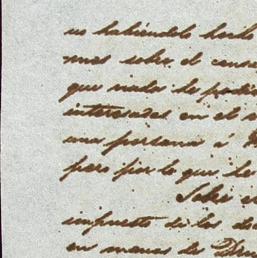 no habiéndolo hecho
mas sobre el conse
que malos le podri
interesadas en el a
una persona á
pero por lo que les
Sobre e
impuesto de los do
en manos de